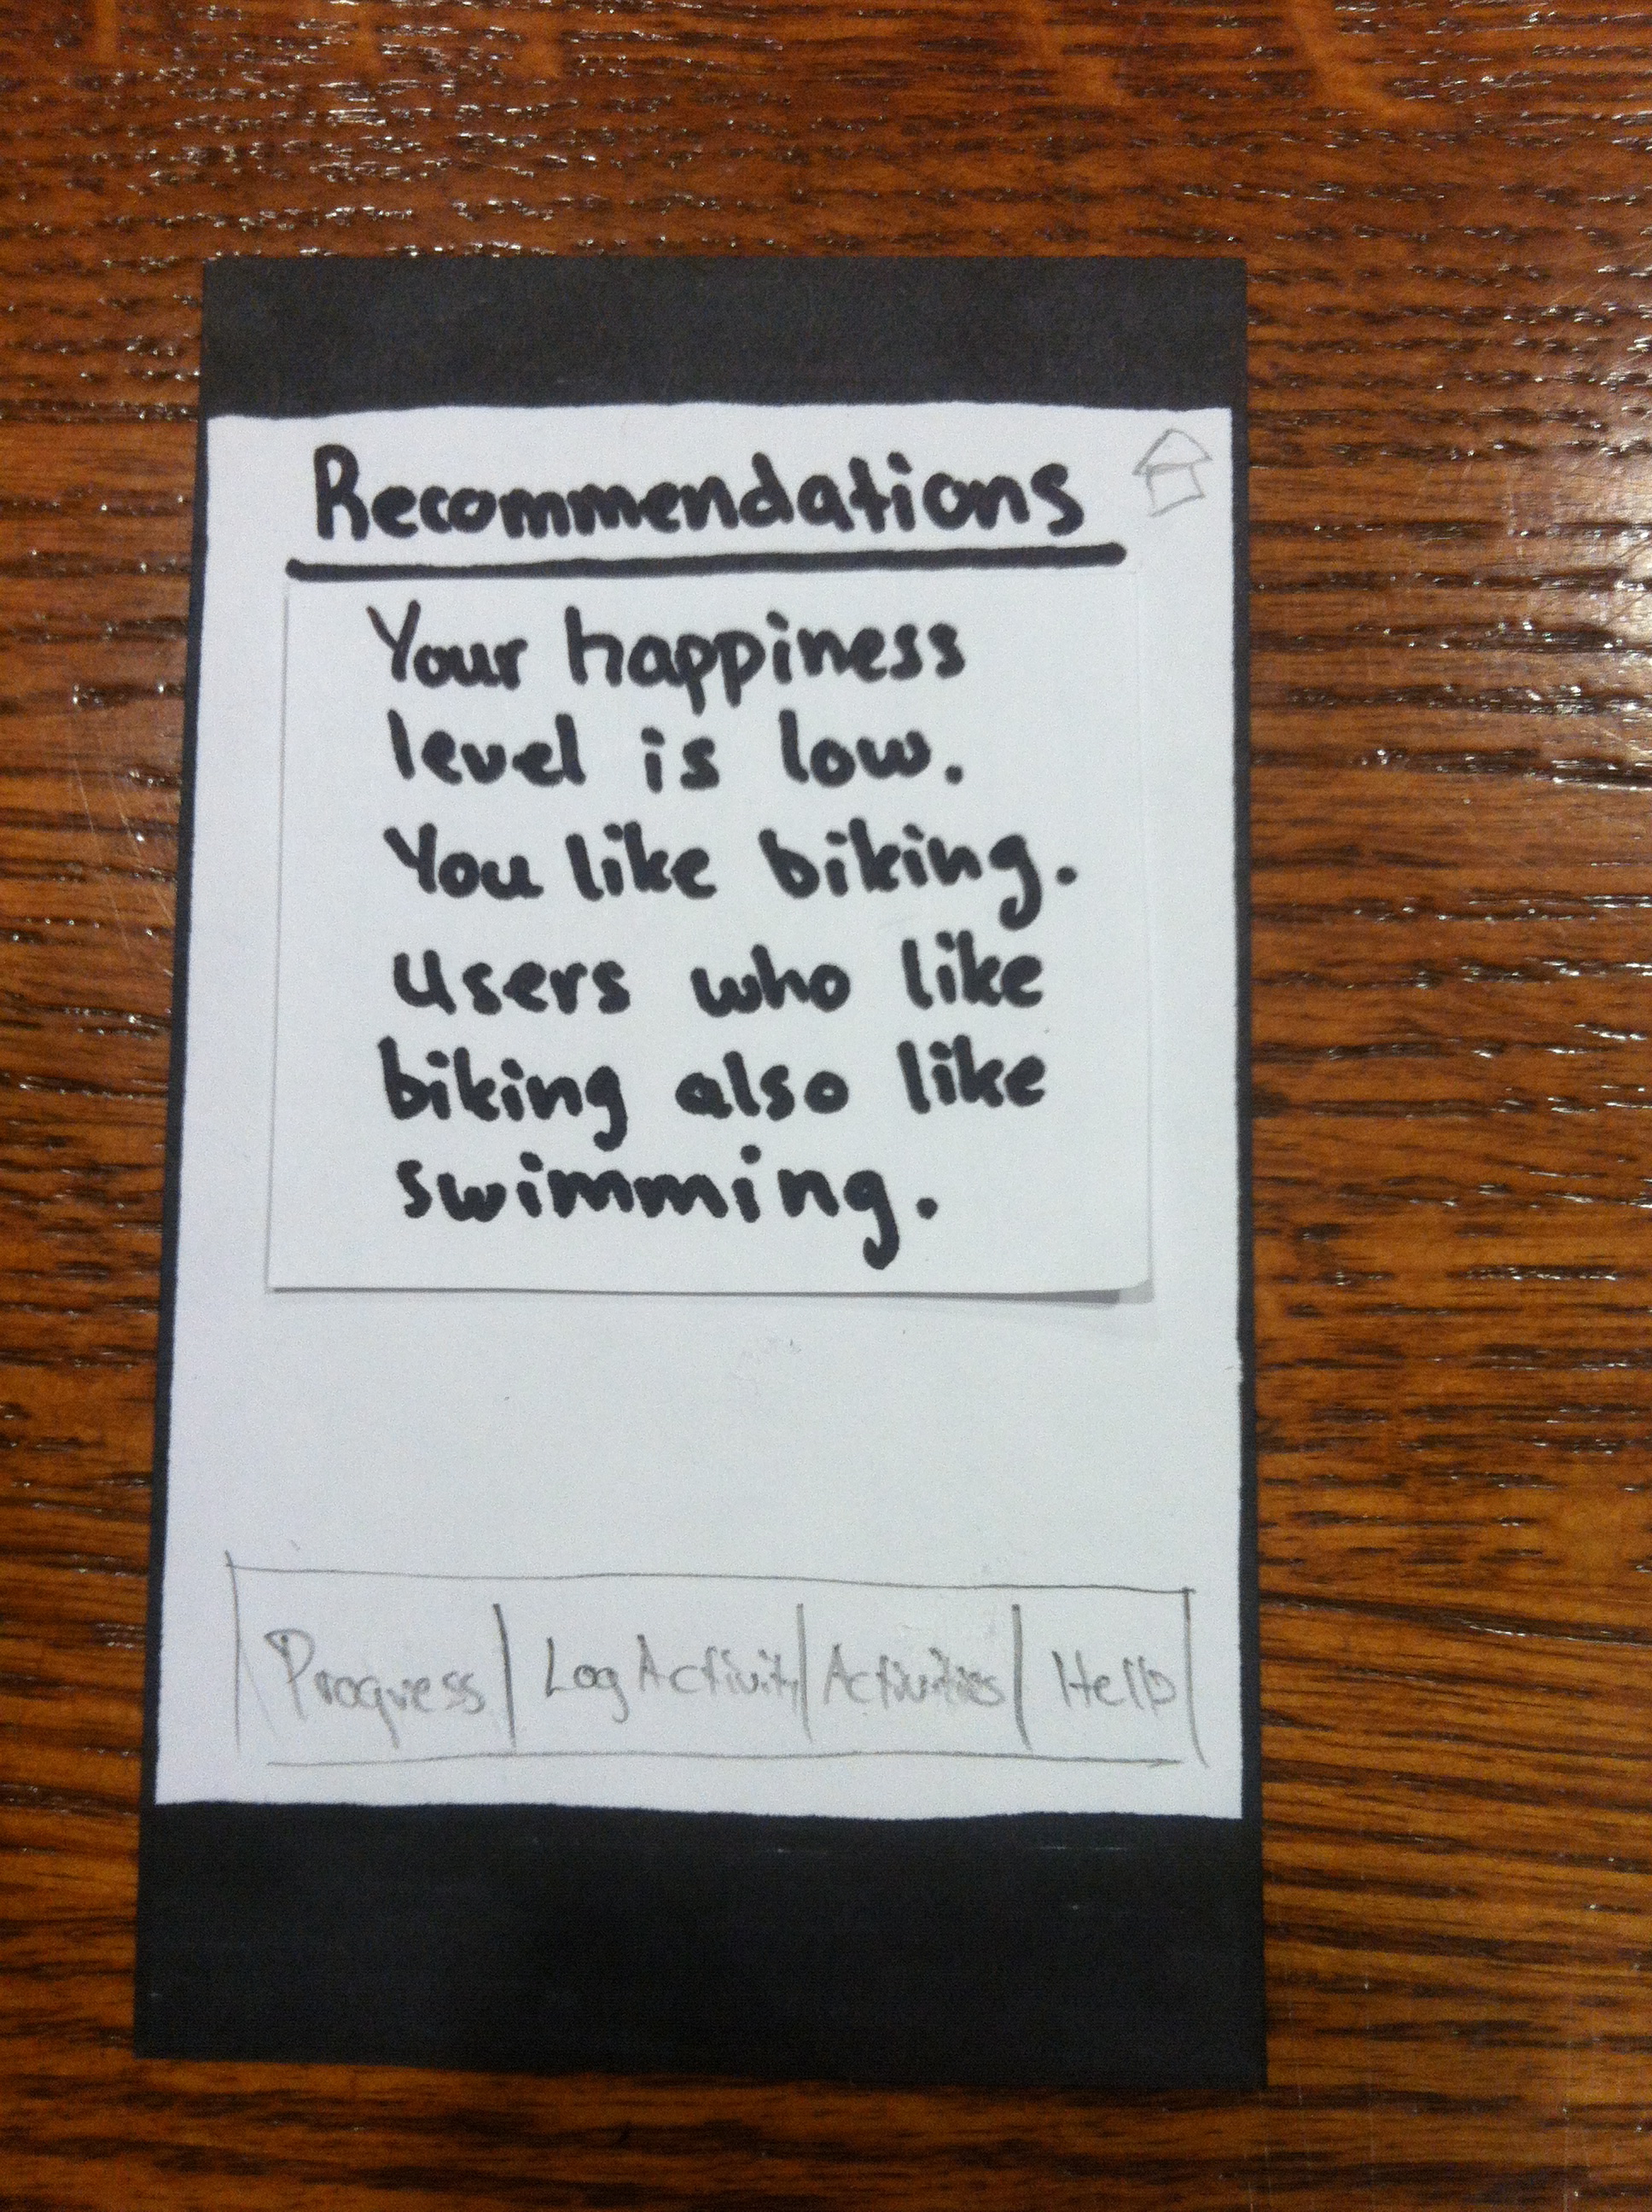 Recommendations
Your happiness
level is low.
You like biking.
users who like
biking also like
swimming.
Progress | Log Activity | Activities | Help